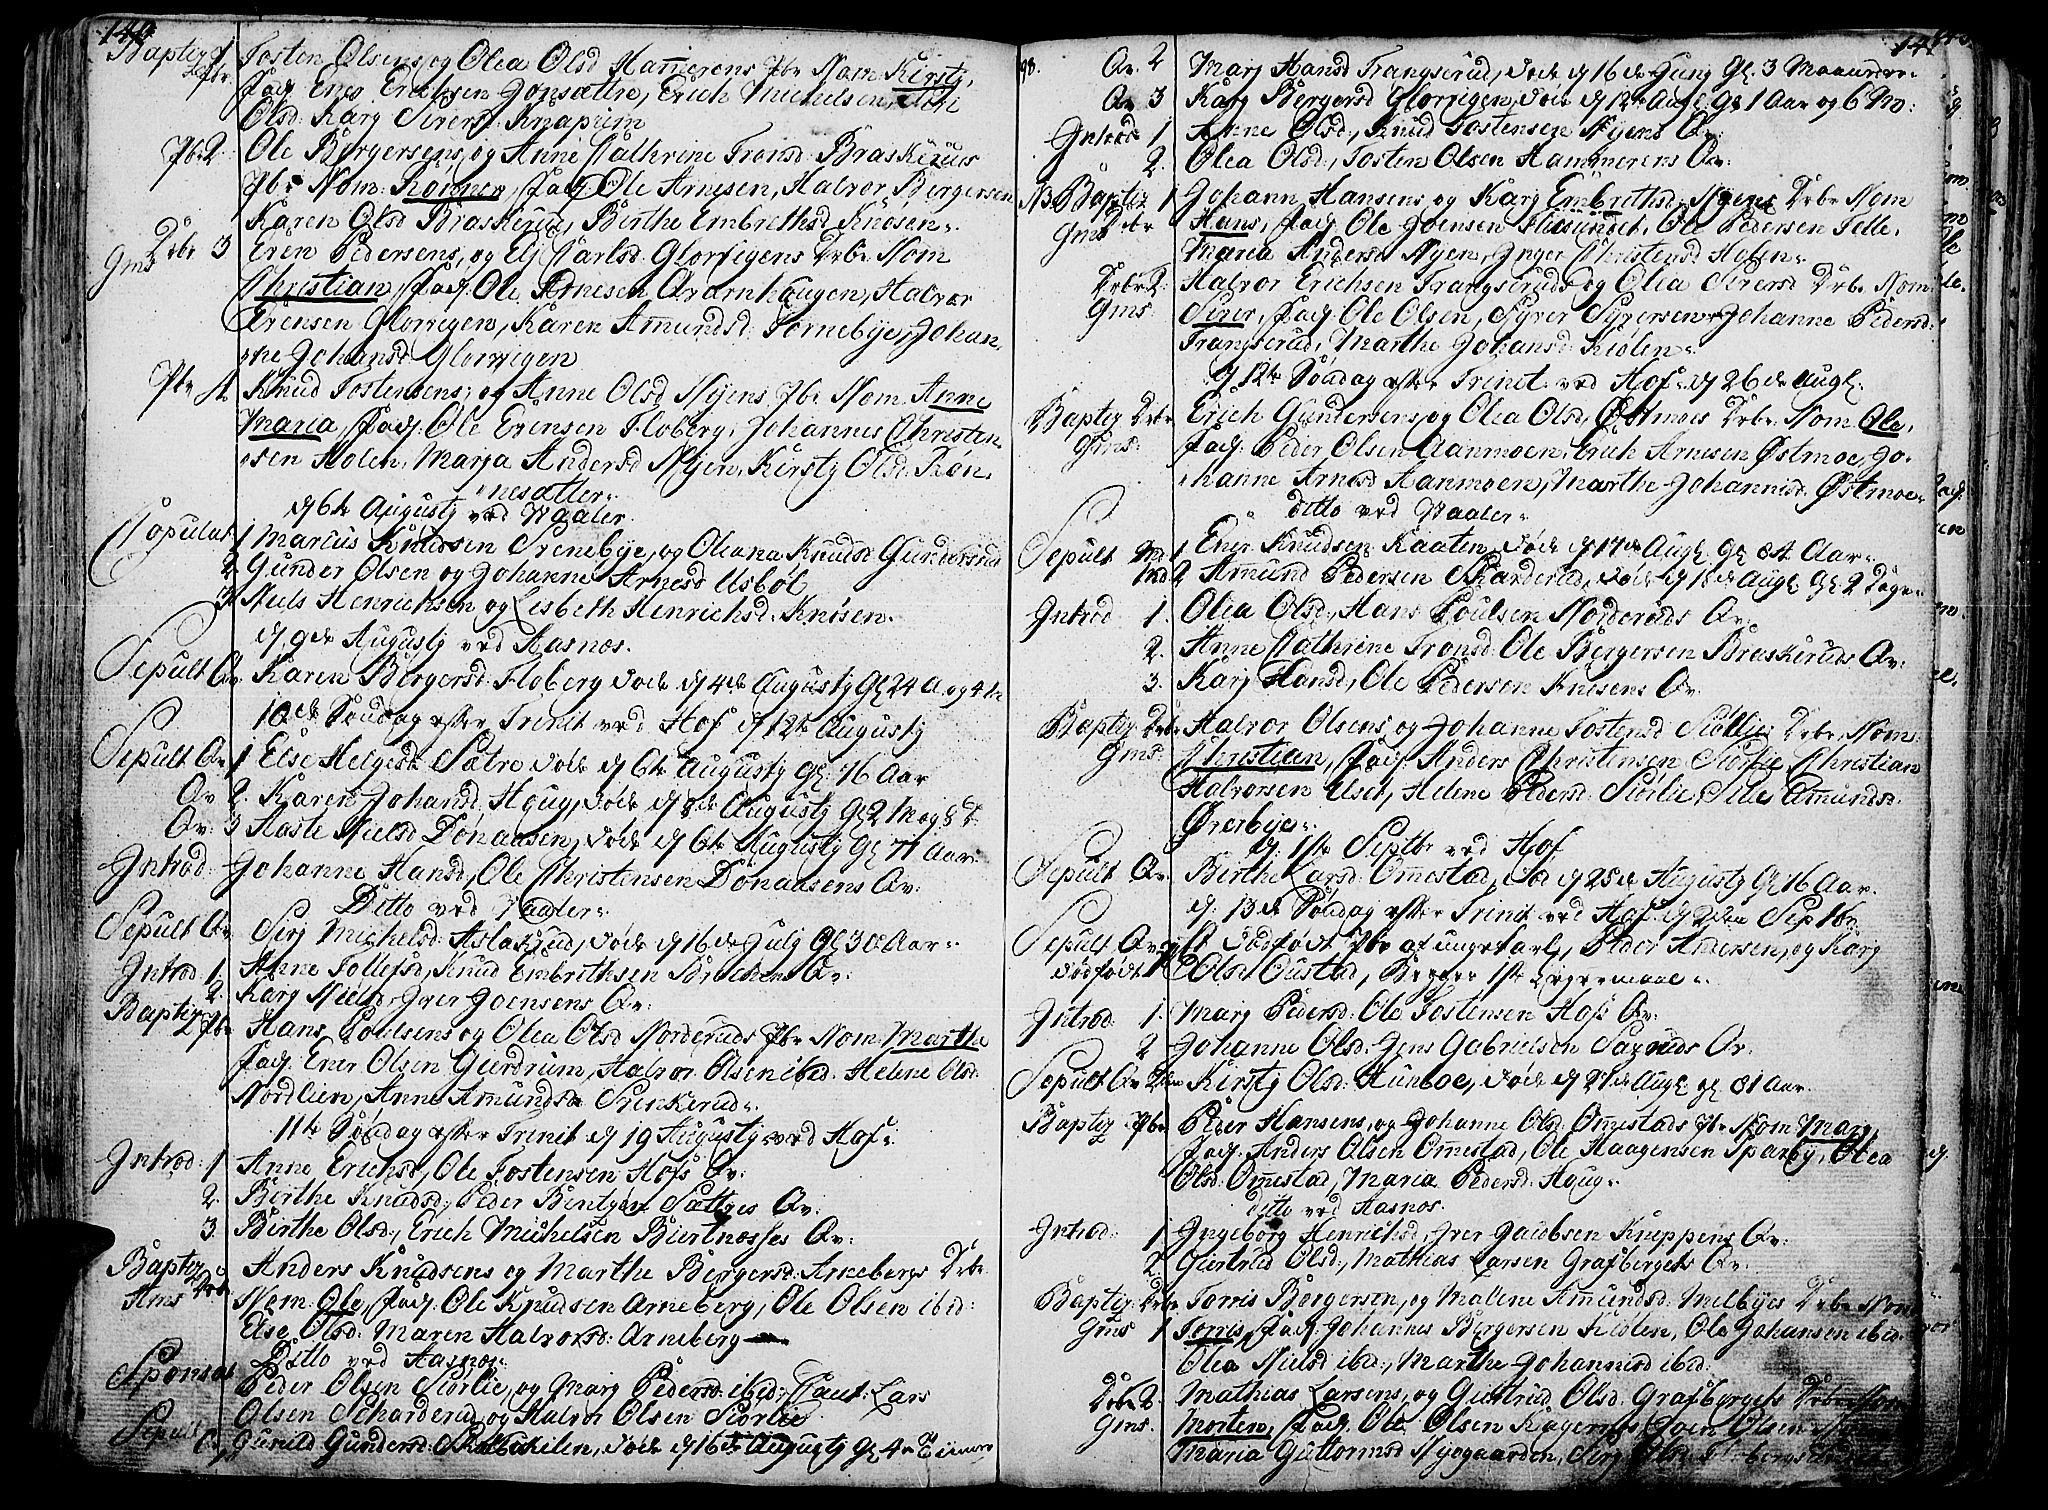 140
Baptiz 1 Tosten Olsens, og Olea Olsd Hammerens Pbr Nom: Kirsty,
Fad: Ener Erichsen Jonsættre, Erich Michelsen,
Olsd: Karj Sirersd: Knapum
Pbr 2 Ole Børgersens, og Anne Cathrine Tronsd: Braskeruds
Pbr Nom: Rønnev, Fad: Ole Arnesen, Halvor Børgersen
Karen Olsd Braskerud, Birthe Embrethsd Knosen.
Drbr 3 Even Pedersens, og Elj Carlsd: Glorvigens Drbr Nom
Gms Christian, Fad: Ole Arnesen Qvarnhaugen, Halvor
Evensen Glorvigen, Karen Amundsd: Tornebye, Johan-
ne Johansd: Glorvigen
Pbr 4 Knud Tostensens, og Anne Olsd Nyens Pbr Nom: Anne
Maria, Fad: Ole Evensen Floberg, Johannes Christen-
sen Holen, Marja Andersd Nyen, Kirsty Olsd: Røn-
nesætter.
d 6te Augusty ved Waaler.
Copulat 1 Marcus Knudsen Svenebye, og Oleana Knudsd: Gundersrud
2 Gunder Olsen og Johanne Arnesd Usbøl
3 Niels Henrichsen og Lisbeth Henrichsd: Knosen.
d 9de Augusty ved Aasnæs.
Sepult Qv. Karen Børgersd: Floberg døde d 4de Augusty Gl 24 A og 4
10de Søndag efter Trinit ved Hof d 12te Augusty
Sepult Qv 1 Else Helgesd: Sætre døde d 6te Augusty Gl: 76 Aar
Qv 2. Karen Johansd: Houg, døde d Augusty Gl 2 M og 8 D:
Qv: 3 Aaste Nielsd Donaasen, døde d 6te Augusty Gl 71 Aar
Introd: Johanne Hansd, Ole Christensen Donaasens Qv:
Ditto ved Vaaler.
Sepult Qv. Sirj Michelsd: Aslakrud, døde d 16de July Gl 30 Aar.
Introd: 1. Anne Tollefsd, Knud Embrethsen Qv:
2. Karj Nielsd, Iver Joensens Qv:
Baptiz Pbr Hans Poulsens og Olea Olsd Norderuds Pbr Nom: Marthe
Fad: Ener Olsen Gierdrum, Halvor Olsen ibid: Helene Olsd:
Nordlien, Anne Amundsd: Svenkerud.
11te Søndag efter Trinit d 19 Augusty ved Hof.
Introd: 1 Anne Erichsd, Ole Tostensen Hofs Qv.
2. Birthe Knudsd, Peder Bentsen Sættres Qv.
3. Birthe Olsd, Erich Michelsen Biertnæsses Qv:
Baptiz Drbr Anders Knudsens og Marthe Børgersd: Arnebergs Drbr
Gms Nom: Ole, Fad: Ole Knudsen Arneberg, Ole Olsen ibid:
Else Olsd: Maren Halvorsd: Arneberg
Ditto ved Aasnæs.
Sponsat Peder Olsen Siørlie, og Marj Pedersd: ibid: Caut: Lars
Olsen Scharderud og Halvor Olsen Siørlie
Sepult Qv Gunild Gundersd: døde d 16de Augusty Gl 4
141
98. Qv. 2 Marj Hansd Trangsrud, døde d 16de Juny Gl: 3 Maaneder.
Qv 3 Karj Børgersd Glorvigen, døde d 12te Augl Gl 1 Aar og 6 Mo:
Introd 1 Anne Olsd, Knud Tostensen Nyens Qv.
2. Olea Olsd, Tosten Olsen Hammerens Qv:
NB Baptiz 1 Johann Hansens, og Karj Embrethsd: Nyens Drbr Nom
Drbr Gms Hans, Fad: Ole Joensen Flisundet, Ole Pedersen Telle.
Maria Andersd Nyen, Inger Christensd Holen.
Drbr 2. Halvor Erichsen Trangsruds og Olea Siversd Drbr Nom:
Gms: Siver, Fad: Ole Olsen, Syver Syversen, Johanne Pedersd:
Trangsrud, Marthe Johansd: Kiølen.
d 12te Søndag efter Trinit ved Hof d 26de Augl:
Baptiz Drbr Erich Gundersens, og Olea Olsd: Østmoes Drbr Nom Ole,
Gms: Fad: Peder Olsen Aanmoen, Erich Arnesen Østmoe, Jo-
hanne Arnesd Aanmoen, Marthe Johannisd: Østmoe.
ditto ved Waaler.
Sepult 1 Ener Knudsen Kaaten, døde d 17de Augl: Gl 84 Aar.
2 Amund Pedersen Skarderud, døde d 18de Augl Gl 2 Dage.
Introd 1. Olea Olsd, Hans Poulsen Norderuds Qv.
2. Anne Cathrine Tronsd: Ole Børgersen Braskeruds Qv:
3. Karj Hansd, Ole Pedersen Knesens Qv.
Baptiz Drbr Halvor Olsens, og Johanne Tostensd Siølljes Drbr Nom:
Gms: Christian, Fad: Anders Christensen Siørlie, Christian
Halvorsen Usel, Helene Pedersd: Siørlie, Amundsd:
Øverbye.
d. 1ste Septbr ved Hof
Sepult Qv. Birthe Larsd: Ommestad, Død d 25de Augusty Gl 16 Aar.
d. 13de Søndag efter Trinit ved Hof d 2den Septbr.
Sepult Qv. 1 Et dødfødt Pbr af ungekarl, Peder Andersen, og Karj
dødfødt Olsd Oustad, Begges 1ste Leyermaal.
Introd 1. Marj Pedersd: Ole Tostensen Hofs Qv:
2 Johanne Olsd: Jens Gabrielsen Qv.
Sepult Qv Kirsty Olsd: Hunboe, døde d 27de Augl: gl 81 Aar.
Baptiz Pbr Peder Hansens, og Johanne Olsd: Ommestads Pbr Nom Marj,
Fad: Anders Olsen Ommestad, Ole Haagensen Sparby, Olea
Olsd: Ommestad, Maria Pedersd: Houg.
ditto ved Aasnæs.
Introd: 1 Ingeborg Henrichsd, Iver Jacobsen Kneppens Qv:
2. Giertrud Olsd, Mathias Larsen Grafbergets Qv.
Baptiz Drbr Torris Børgersen, og Malene Amundsd: Melbyes Drbr Nom
Gms 1 Torris, Fad: Johannes Børgersen Kiølen, Ole Johansen ibid.
Olea Nielsd ibid:, Marthe Johannisd ibid:
Drbr 2. Mathias Larsens, og Giertrud Olsd: Grafbergets Drbr Nom
Gms. Morten, Fad: Ole Olsen Kagernæs, Joen Olsen
Maria Guttormsd Nyegaarden, Sirj Olsd: